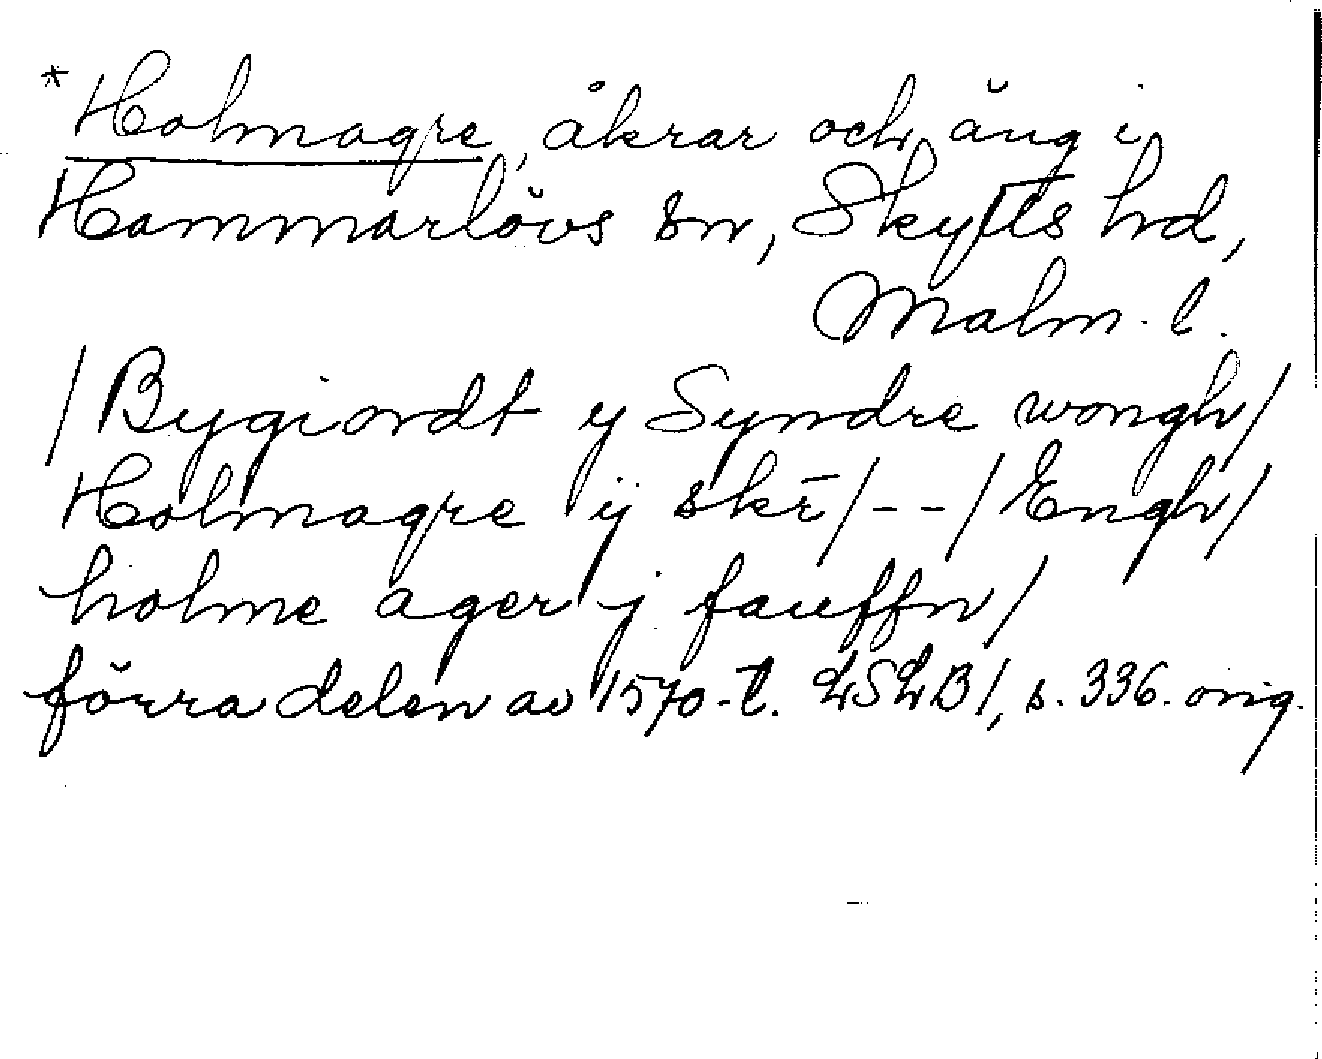 *Holmagre, åkrar och äng i
Hammarlövs sn, Skytts hd,
Malm. l.
/Bygiordt y Syndre wongh/
Holmagre ij skr̄/--/Engh/
holme ager j fauffn/
förra delen av 1570-t. LSLB1, s. 336. orig.